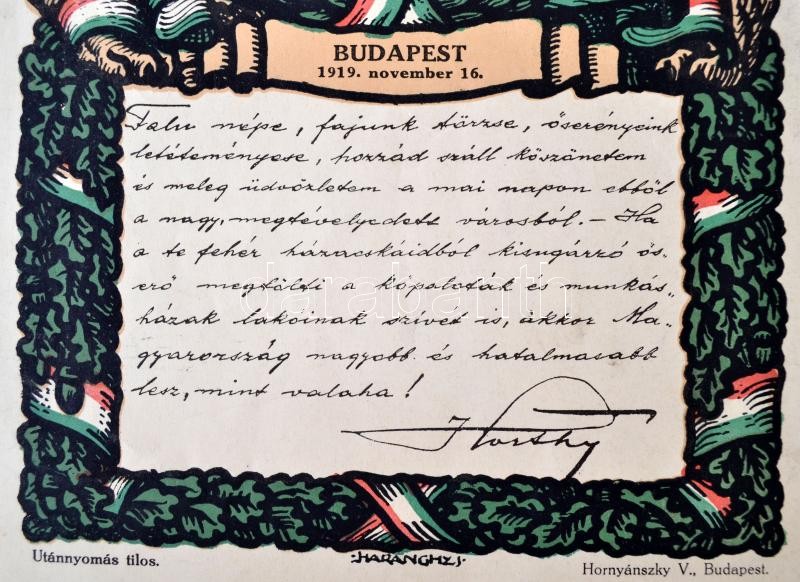 BUDAPEST
1919. november 16.
Falu népe, fajunk törzse, őserényeink
letéteményese, hozzád száll köszönetem
és meleg üdvözletem a mai napon ebből
a nagy, megtévelyedett városból. – Ha
a te fehér házacskáidból kisugárzó ős-
erő megtölti a kőpaloták és munkás-
házak lakóinak szívét is, akkor Ma-
gyarország nagyobb és hatalmasabb
lesz, mint valaha!
Horthy
Utánnyomás tilos.
HARANGHY J.
Hornyánszky V., Budapest.
darabanth